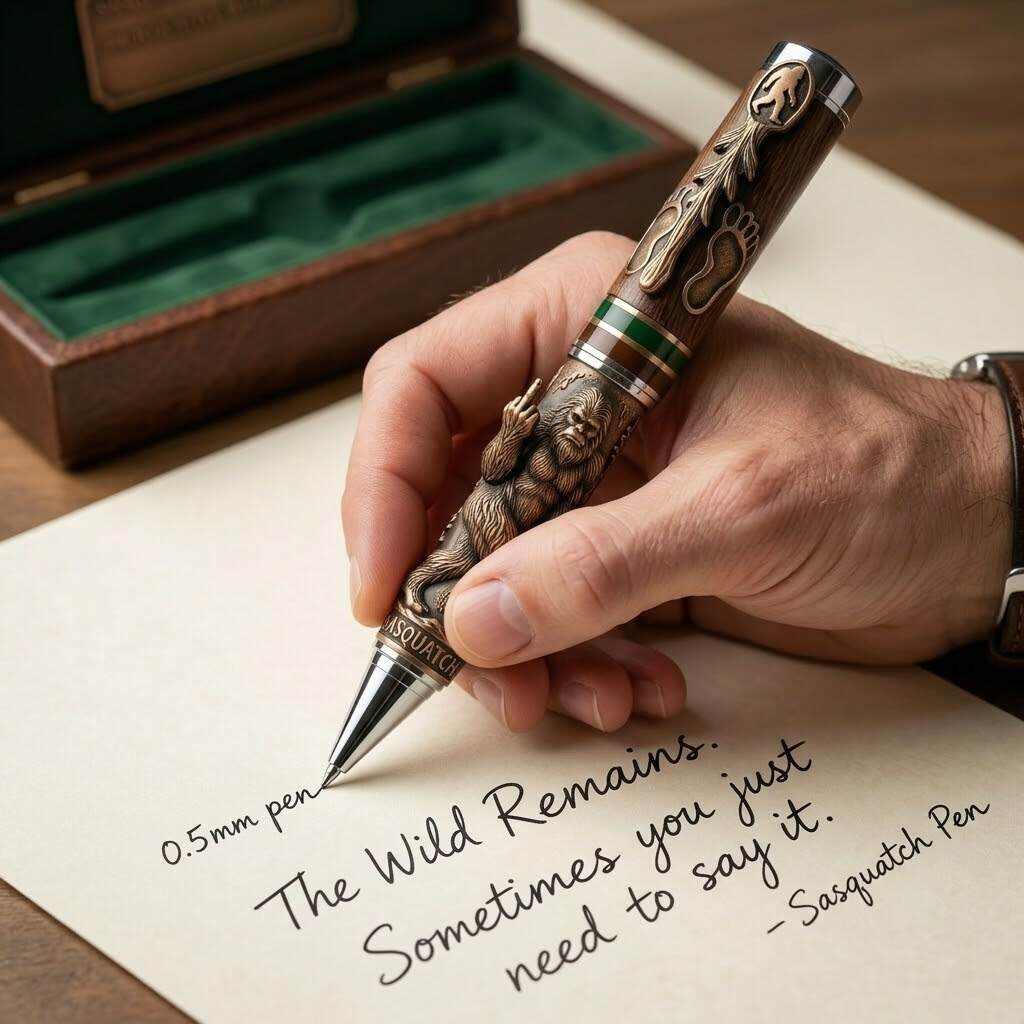 SASQUATCH
0.5mm pen
The Wild Remains.
Sometimes you just
need to say it.
-Sasquatch Pen